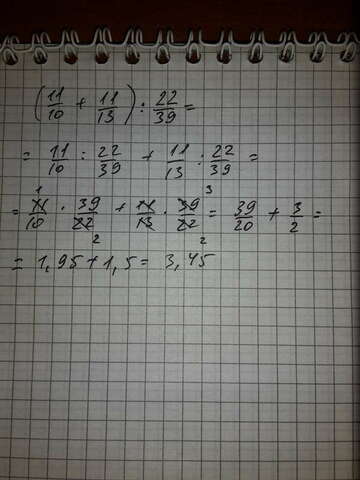 (11/10 + 11/13) : 22/39 =
= 11/10 : 22/39 + 11/13 : 22/39 =
= 11/10 · 39/22 + 11/13 · 39/22 = 39/20 + 3/2 =
= 1,95 + 1,5 = 3,45